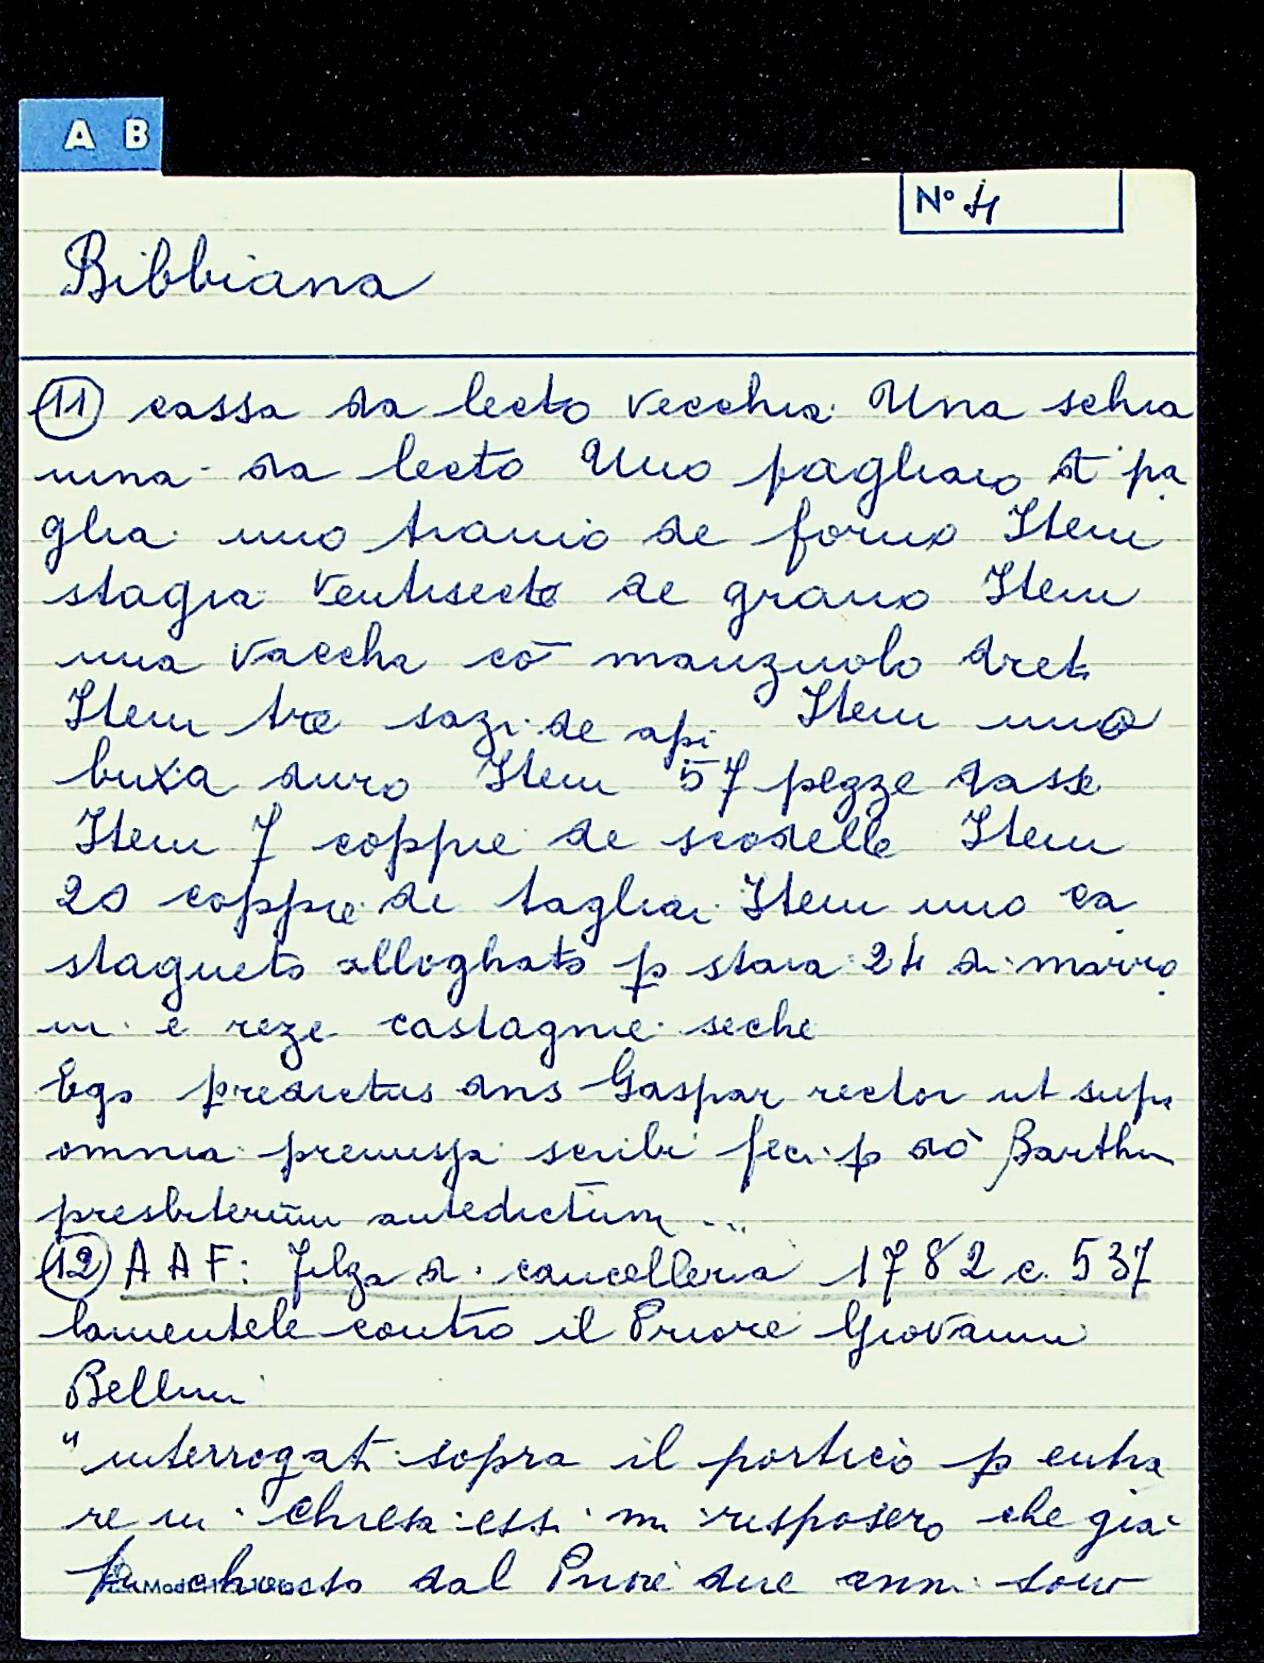 A B
N° 4
Bibbiana
(11) cassa da lecto vecchia Una schia
vina da lecto Uno pagliaio di pa
glia uno tramio de forno Item
stagia ventisecte de grano Item
una vaccha cō manzuolo dreto
Item tre sazi de api Item uno
buxa duro Item 57 pezze dasse
Item 7 coppie de scodelle Item
20 coppie di tagliai Item uno ca
stagneto alloghato p staia 24 di marro
ni e reze castagnie seche
Ego predictus dns Gaspar rector ut supr
omnia premissa scribi feci p dō Barthm
presbiterum antedictum ...
(12) A A F: Filza di cancelleria 1782 c. 537
lamentele contro il Priore Giovanni
Bellini
"interrogati sopra il portico p entra
re in Chiesa essi mi risposero che già
fu chiuso dal Priore due anni sono